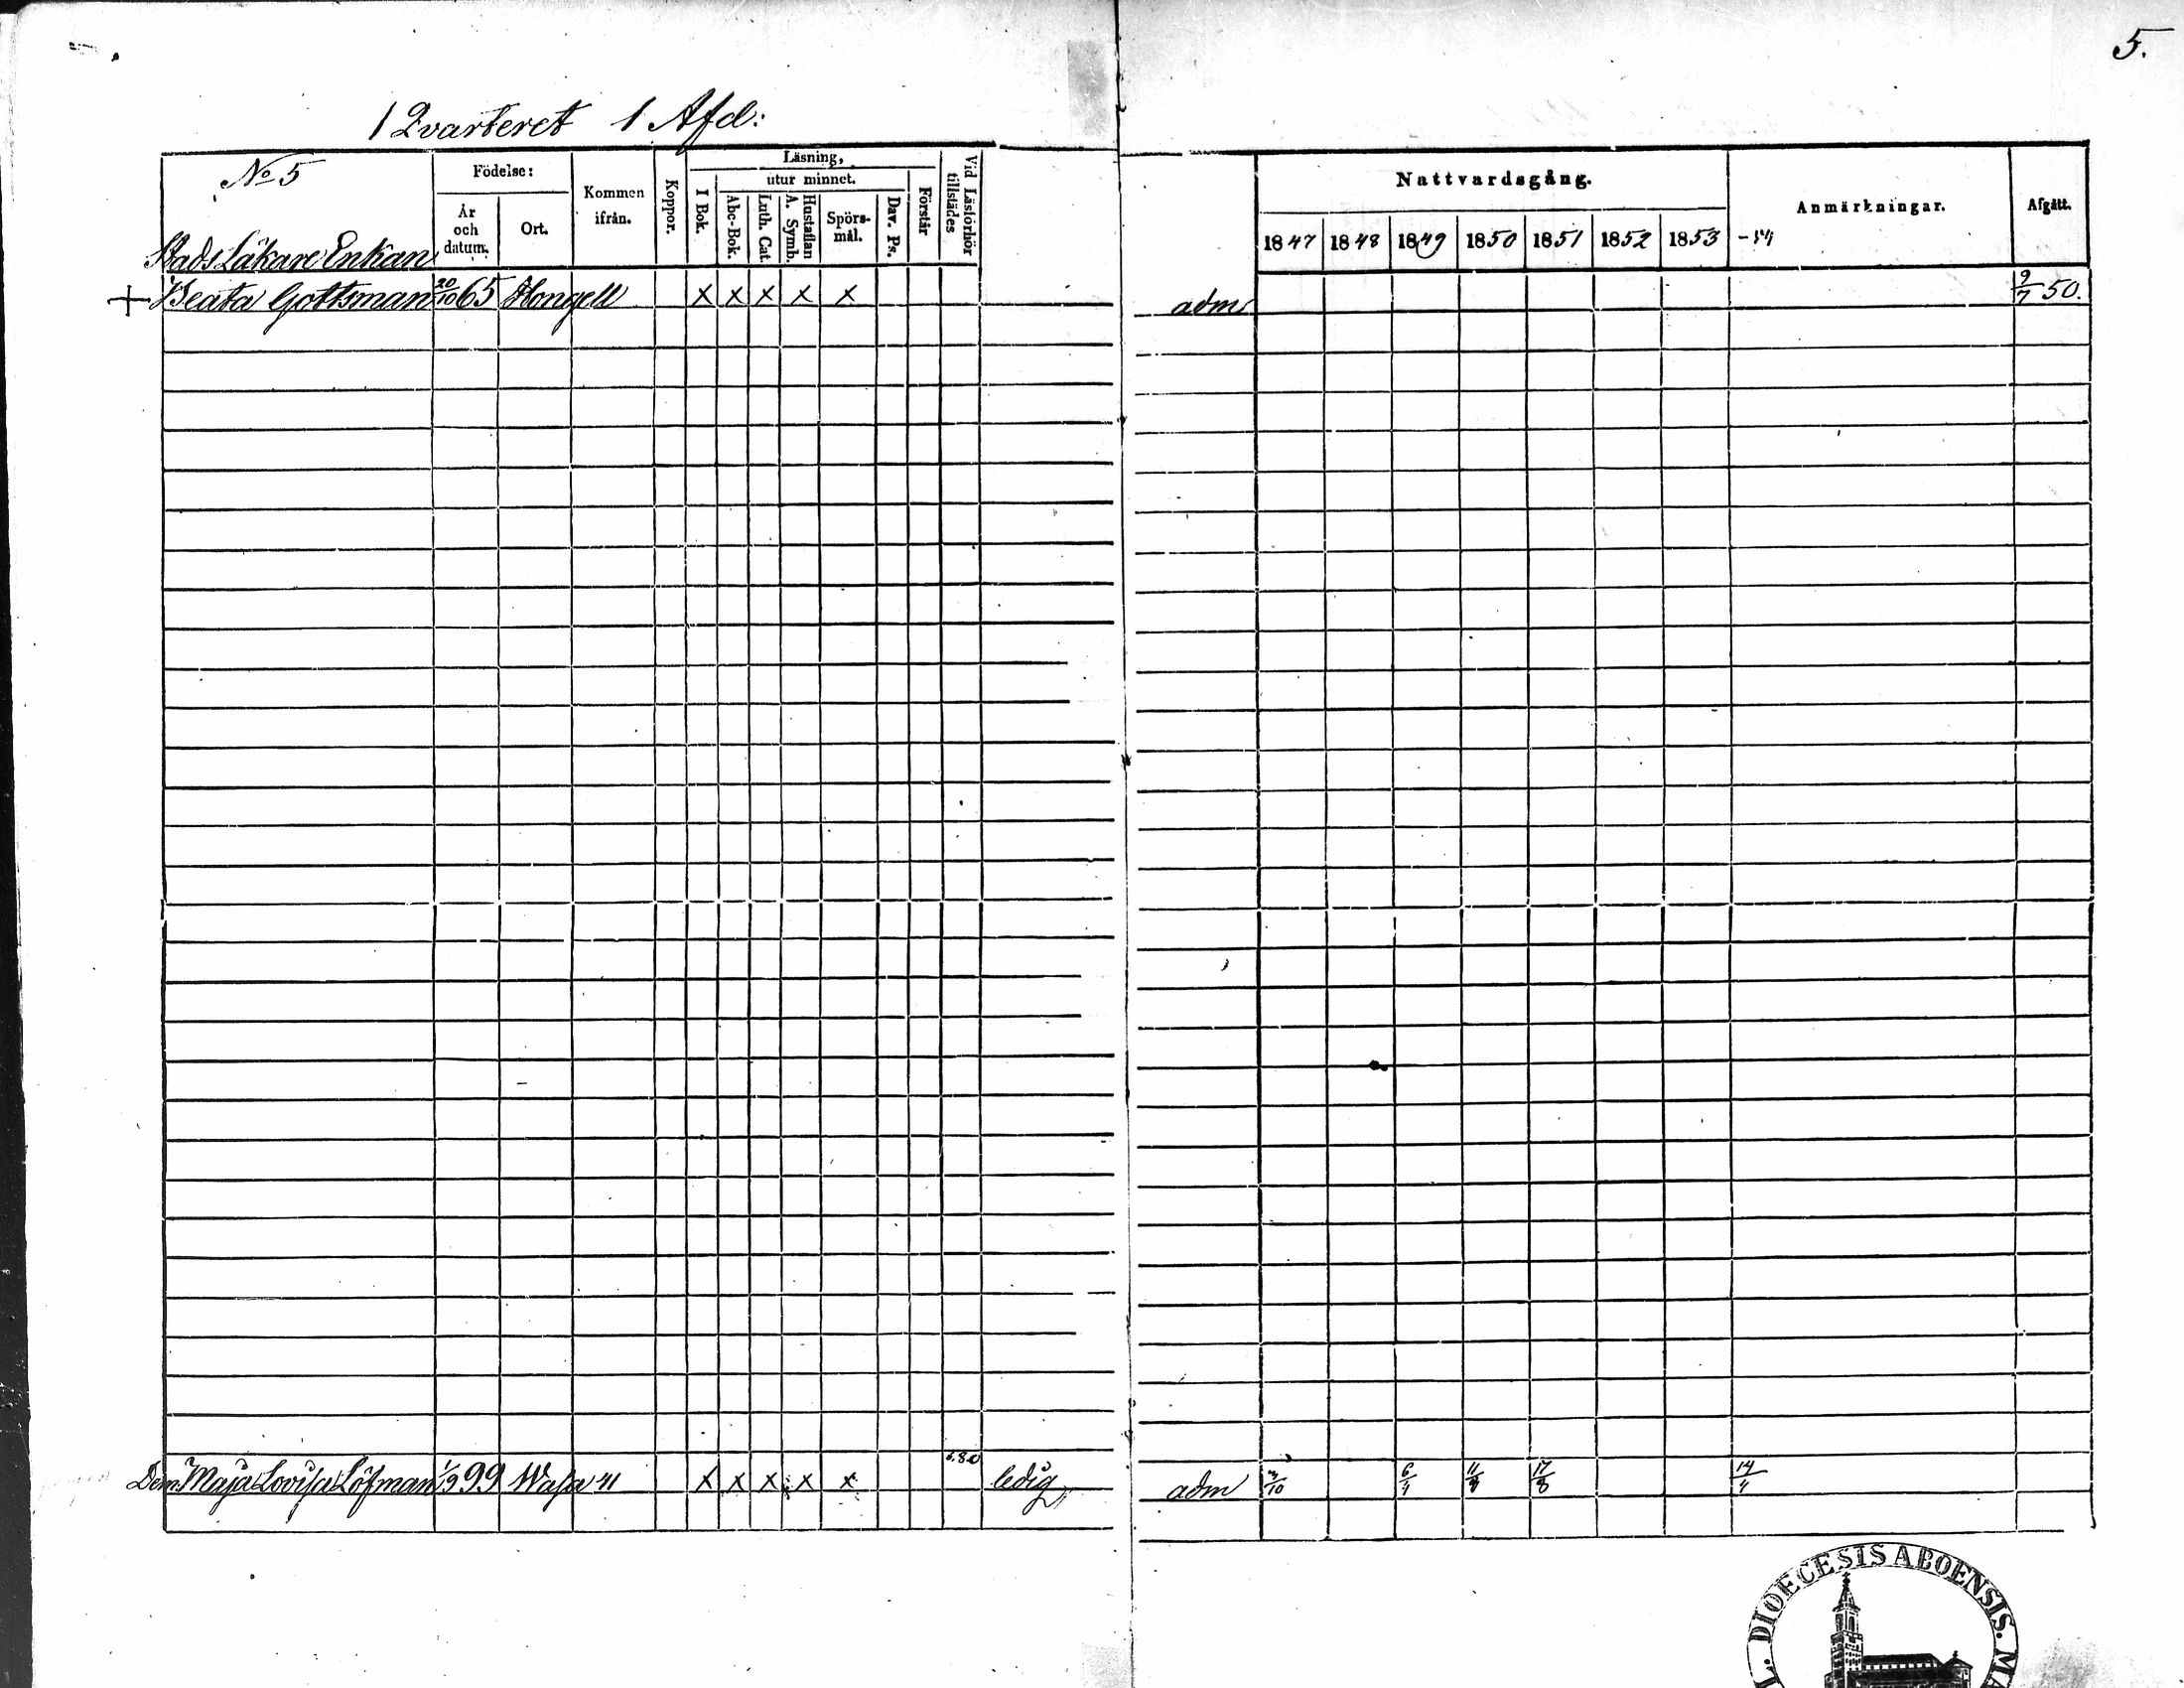 5.
1 Qvarteret 1 Afd:
No 5
Födelse:
År och datum.
Ort.
Kommen ifrån.
Koppor.
Läsning,
utur minnet.
I Bok.
Abc-Bok.
Luth. Cat.
Hustaflan A. Symb.
Spörsmål.
Dav. Ps.
Förstår
Vid Läsförhör tillstädes
Nattvardsgång.
1847 1848 1849 1850 1851 1852 1853 -54
Anmärkningar.
Afgått.
Stads Läkare Enkan
+ Beata Gottsman 20/10 65 Hongell x x x x x adm 9/7 50.
Dem: Maja Lovisa Löfman 1/9 99 Wasa 41 x x x x x ledig adm 3/10 6/4 17/8 14/4
L. DIOECESIS ABOENSIS. MA